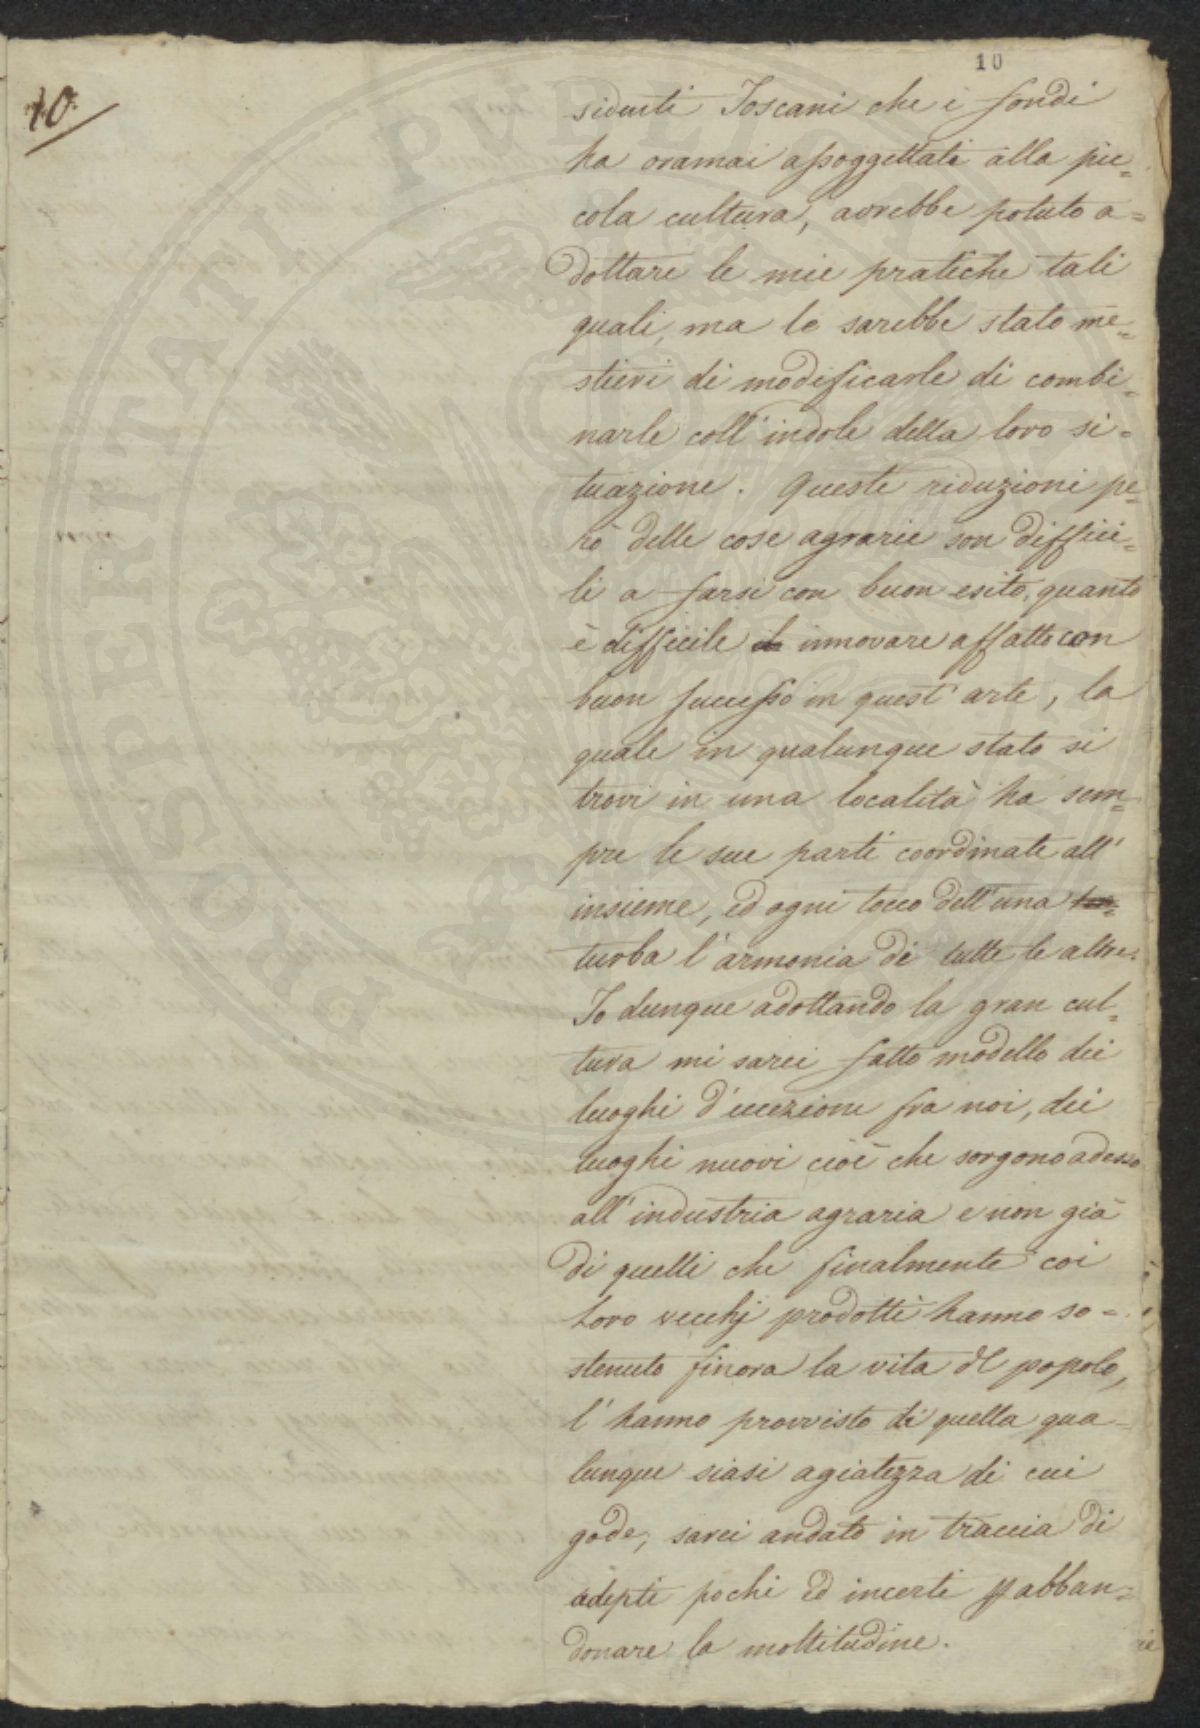 10
10.
sidenti Toscani che i fondi
ha oramai assoggettati alla pic=
cola cultura, avrebbe potuto a=
dottare le mie pratiche tali
quali, ma le sarebbe stato me=
stieri di modificarle di combi=
narle coll'indole della loro si=
tuazione. Queste riduzioni pe=
rò delle cose agrarie son diffici=
li a farsi con buon esito, quanto
è difficile innovare affatto con
buon successo in quest'arte, la
quale in qualunque stato si
trovi in una località ha sem=
pre le sue parti coordinate all'
insieme, ed ogni tocco dell'una
turba l'armonia di tutte le altre.
Io dunque adottando la gran cul=
tura mi sarei fatto modello dei
luoghi d'eccezione fra noi, dei
luoghi nuovi cioè che sorgono adesso
all'industria agraria e non già
di quelli che finalmente coi
loro vecchj prodotti hanno so=
stenuto finora la vita del popolo,
l'hanno provvisto di quella qua=
lunque siasi agiatezza di cui
gode, sarei andato in traccia di
adepti pochi ed incerti p abban=
donare la moltitudine.
PROSPERITATI PVBLICAE